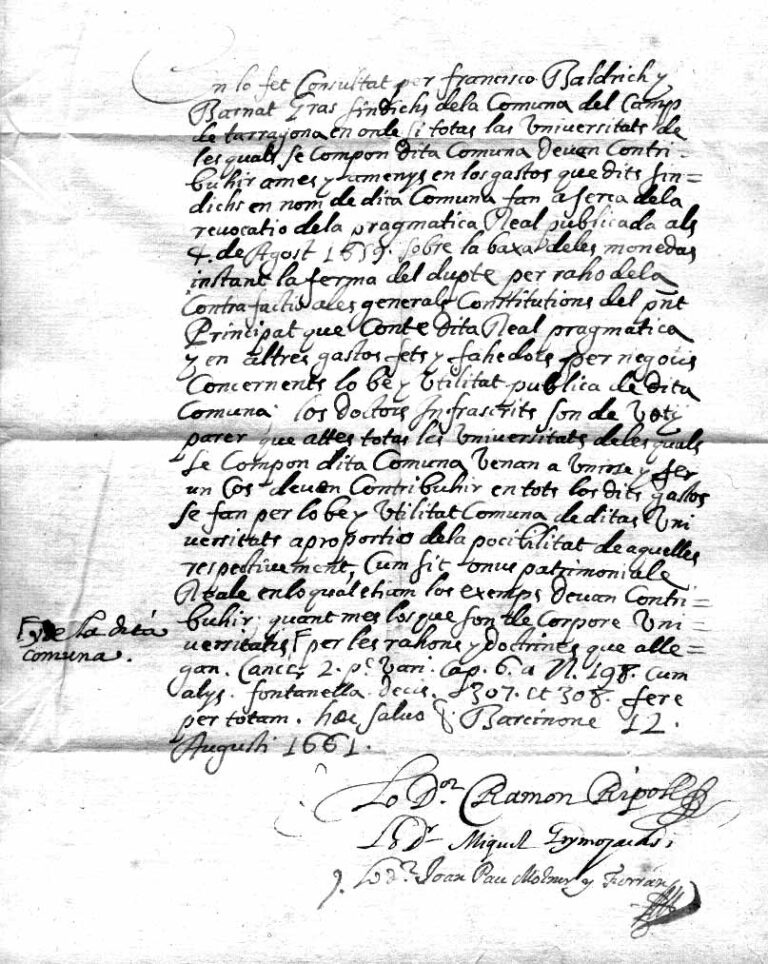 En lo fet Consultat per francisco Baldrich y
Barnat Gras sindichs dela Comuna del Camp
de tarragona en onde si totas las Universitats de
les quals se Compon dita Comuna devan Contri-
buhir ames y amenys en los gastos que dits sin=
dichs en nom de dita Comuna fan a serca dela
revocatio dela pragmatica Real publicada als
4. de Agost 1659. sobre la baxa deles monedas
instant la ferma del dupte per raho dela
Contrafactio ales generals Constitutions del pnt
Principat que Conte dita Real pragmatica
y en altres gastos fets y fahedors per negocis
Concernents lo be y Utilitat publica de dita
Comuna. los doctors Infrascrits son de Vot y
parer que attes totas les Universitats deles quals
se Compon dita Comuna venan a Unirse y fer
un Cos devan Contribuhir en tots los dits gastos
se fan per lo be y Utilitat Comuna de ditas Uni
versitats a proportio dela pocibilitat de aquelles
respectivement, Cum sit onus patrimoniale
Reale en lo qual etiam los exemps devan Contri=
buhir quant mes los que son de Corpore Uni=
versitatis per les rahons y doctrines que alle=
gan. Cancer 2. p. vari. Cap. 6. a N. 198. Cum
alys. fontanella decis. 307. et 308. fere
per totam. hoc salvo &. Barcinone 12.
Augusti 1661.
y de la dita
comuna.
Lo Dor. Ramon Ripoll
Lo Dr. Miquel
Lo Dr. Joan Pau Moliner y Ferran